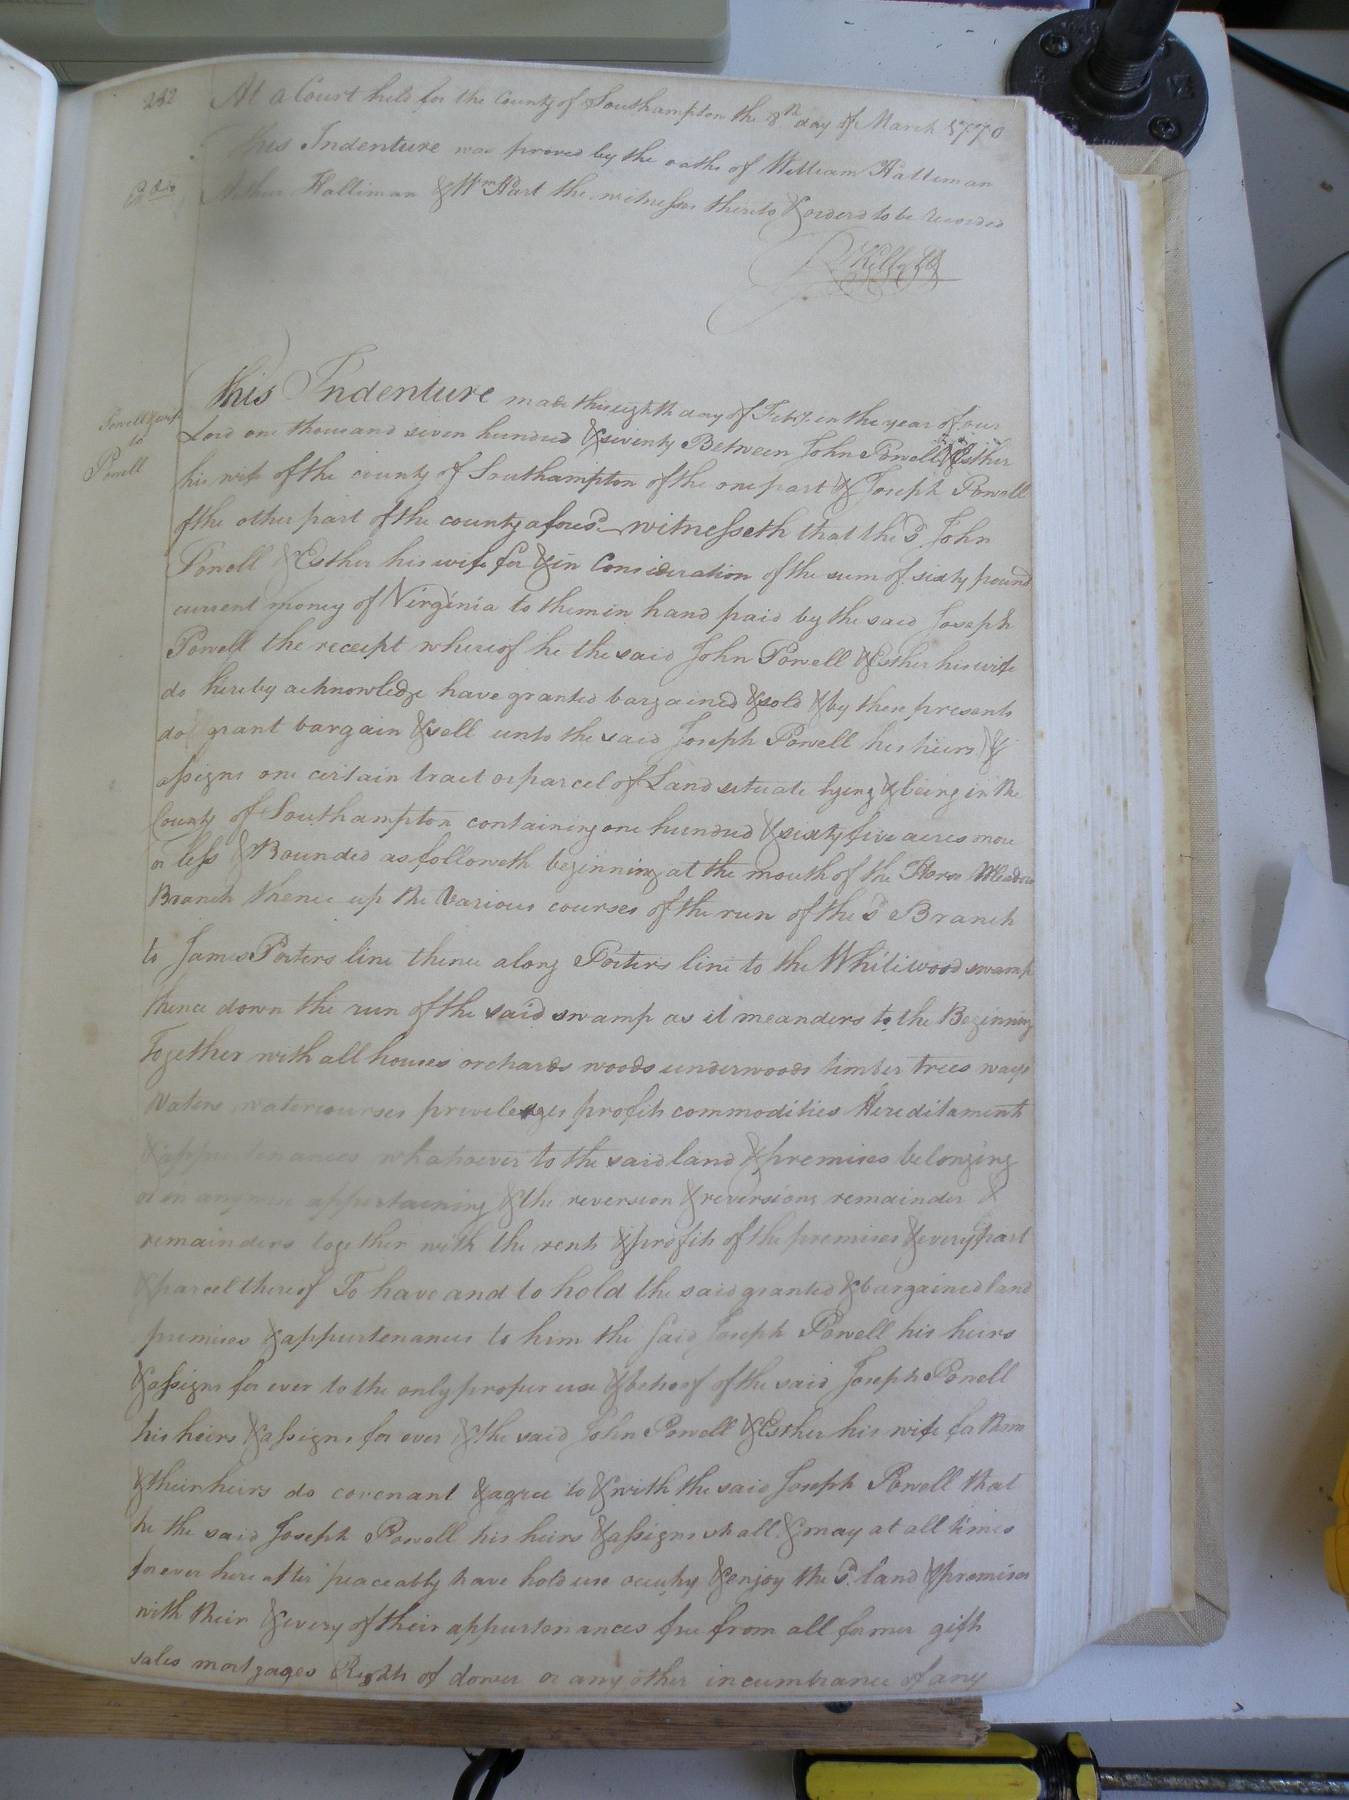 252
At a Court held for the County of Southampton the 8th day of March 1770
This Indenture was proved by the oaths of William Halleman
Arthur Halliman & Wm Hart the witnesses thereto & orderd to be recorded
This Indenture made this eighth day of Feby. in the year of our
Powell & wife
to
Powell
Lord one thousand seven hundred & seventy Between John Powell & Esther
his wife of the county of Southampton of the one part & Joseph Powell
of the other part of the county afores'd witnesseth that the sd. John
Powell & Esther his wife for & in Consideration of the sum of sixty pound
current money of Virginia to them in hand paid by the said Joseph
Powell the receipt whereof he the said John Powell & Esther his wife
do hereby acknowledge have granted bargained & sold & by these presents
do grant bargain & sell unto the said Joseph Powell his heirs &
assigns one certain tract or parcel of Land situate lying & being in the
County of Southampton containing one hundred & sixty five acres more
or less & Bounded as followeth beginning at the mouth of the Horse Meadow
Branch thence up the Various courses of the run of the sd Branch
to James Porters line thence along Porters line to the Whitewood swamp
thence down the run of the said swamp as it meanders to the Beginning
Together with all houses orchards woods underwoods timber trees ways
Waters watercourses priveleges profits commodities Hereditaments
& appurtenances whatsoever to the said land & premises belonging
or in any wise appertaining & the reversion & reversions remainder &
remainders together with the rents & profits of the premises & every part
& parcel thereof To have and to hold the said granted & bargained land
premises & appurtenances to him the said Joseph Powell his heirs
& assigns for ever to the only proper use & behoof of the said Joseph Powell
his heirs & assigns for ever & the said John Powell & Esther his wife for them
& their heirs do covenant & agree to & with the said Joseph Powell that
he the said Joseph Powell his heirs & assigns shall & may at all times
for ever here after peaceably have hold use occupy & enjoy the sd. land & premises
with their & every of their appurtenances free from all former gifts
sales mortgages Right of dower or any other incumbrance of any